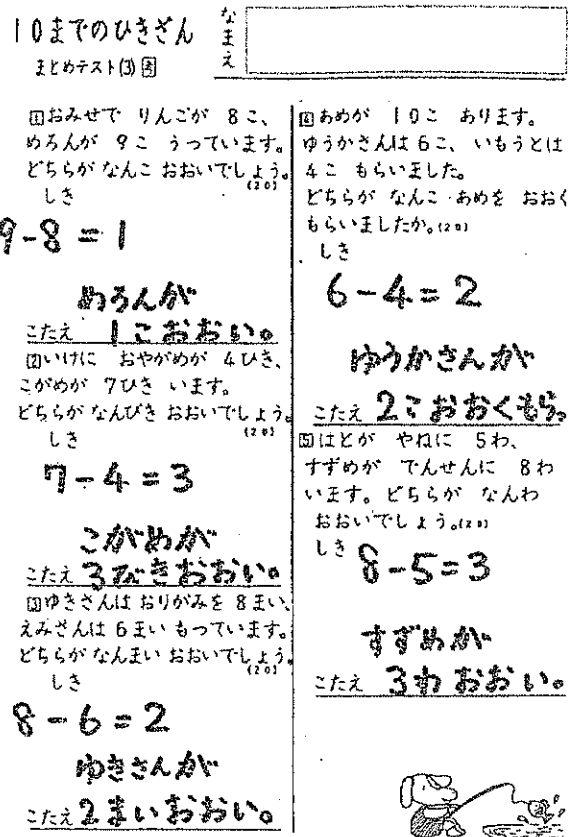 10までのひきざん
まとめテスト(3)
なまえ
1 おみせで りんごが 8こ、
めろんが 9こ うっています。
どちらが なんこ おおいでしょう。
(20)
しき
9-8=1
めろんが
こたえ 1こおおい。
2 いけに おやがめが 4ひき、
こがめが 7ひき います。
どちらが なんびき おおいでしょう。
(20)
しき
7-4=3
こがめが
こたえ 3びきおおい。
3 ゆきさんは おりがみを 8まい、
えみさんは 6まい もっています。
どちらが なんまい おおいでしょう。
(20)
しき
8-6=2
ゆきさんが
こたえ 2まいおおい。
4 あめが 10こ あります。
ゆうかさんは 6こ、いもうとは
4こ もらいました。
どちらが なんこ あめを おおく
もらいましたか。(20)
しき
6-4=2
ゆうかさんが
こたえ 2こおおくもら。
5 はとが やねに 5わ、
すずめが でんせんに 8わ
います。どちらが なんわ
おおいでしょう。(20)
しき
8-5=3
すずめが
こたえ 3わ おおい。